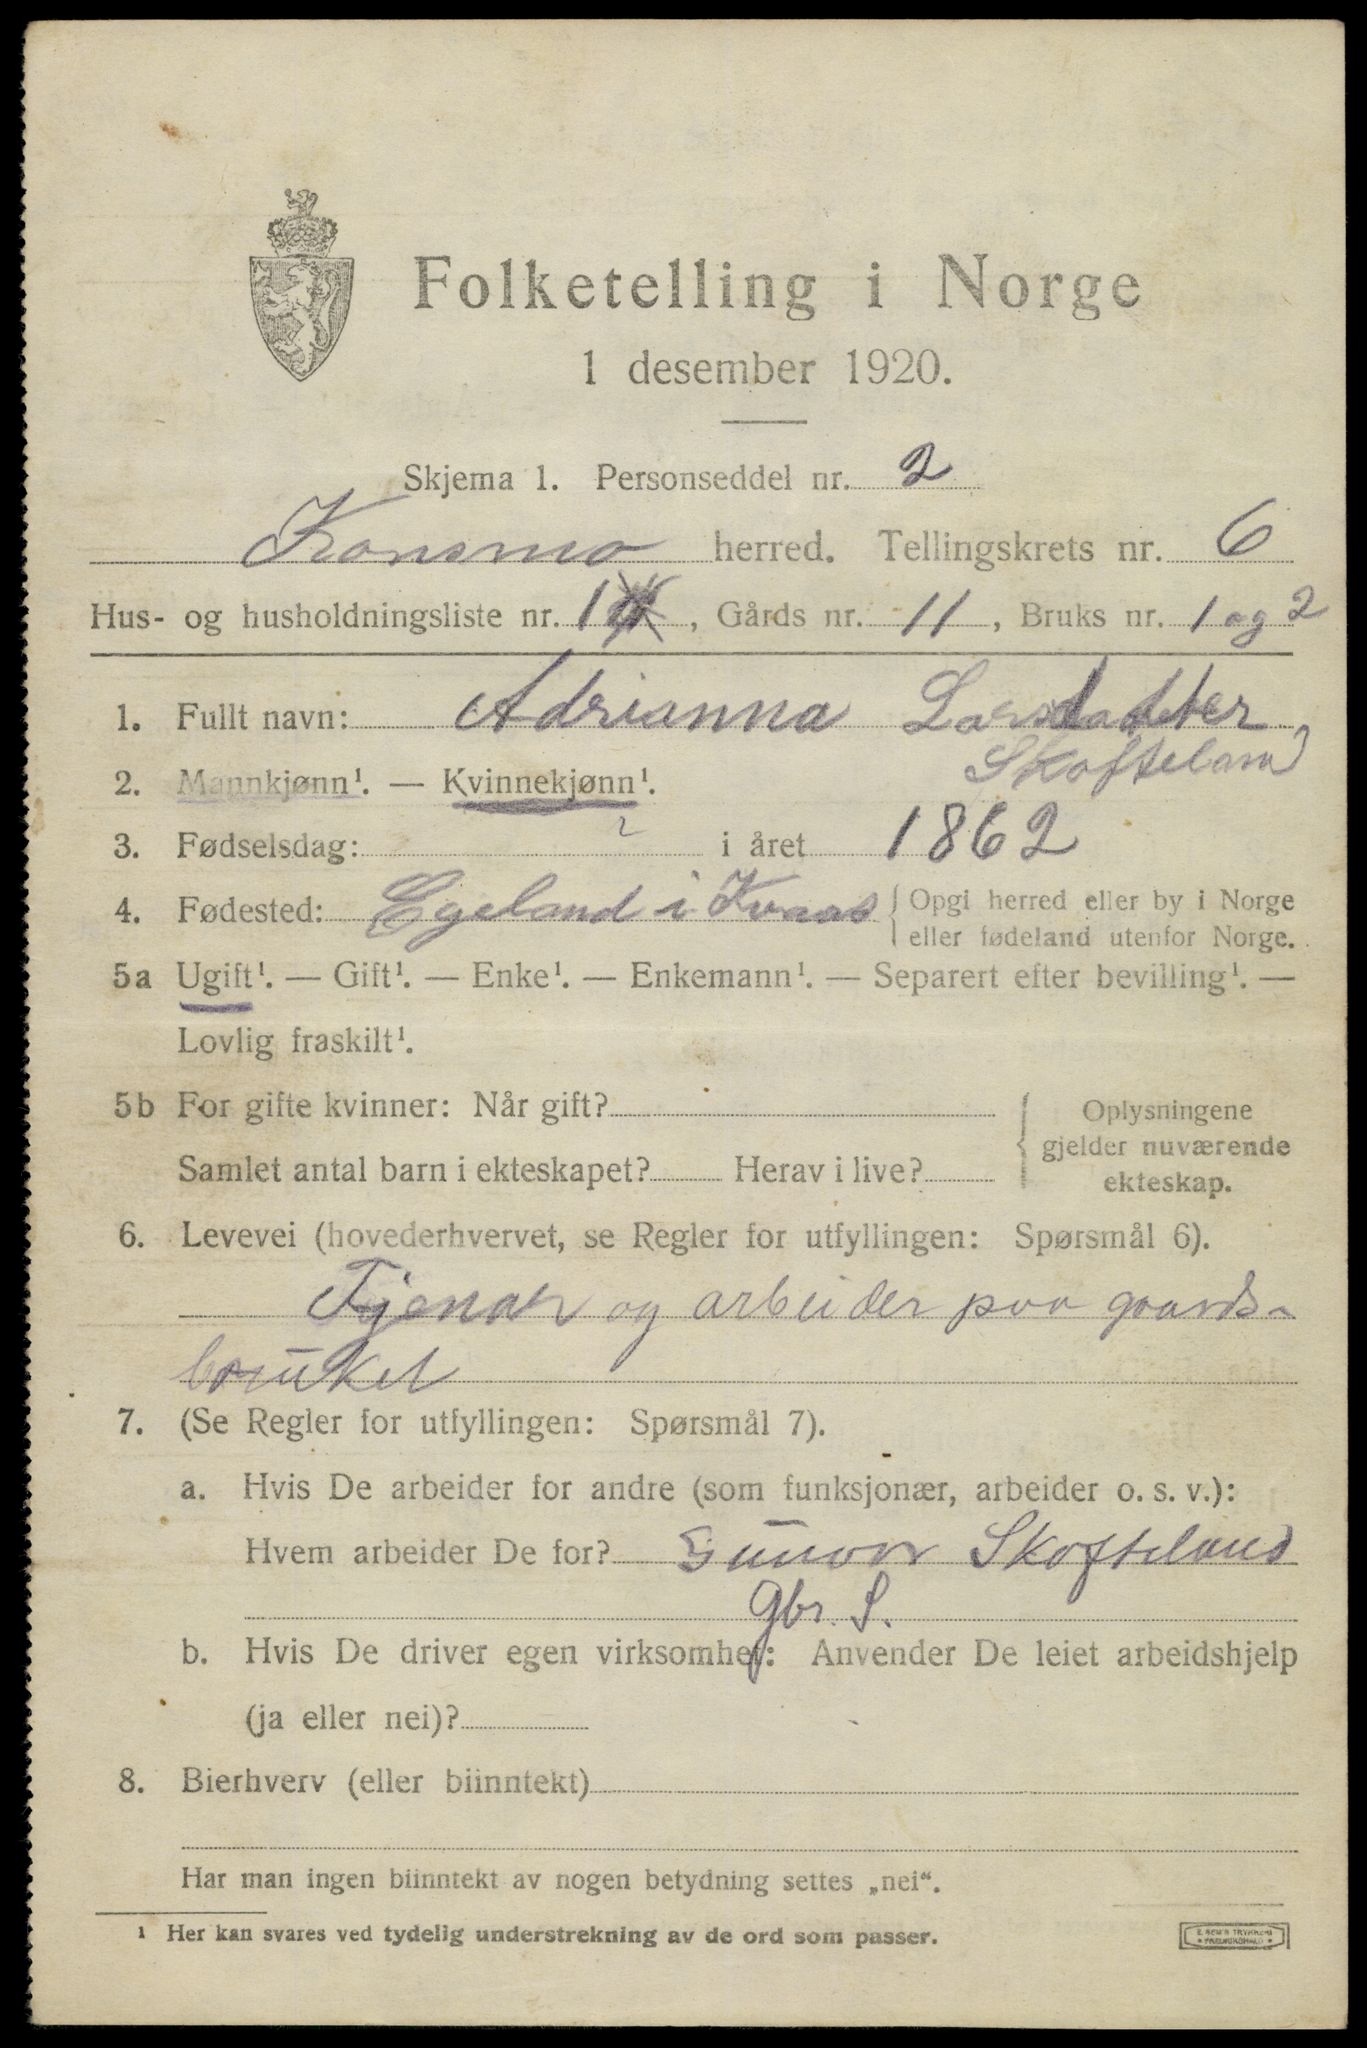 Folketelling i Norge
1 desember 1920.
Skjema 1. Personseddel nr. 2
Konsmo herred. Tellingskrets nr. 6
Hus- og husholdningsliste nr. 1, Gårds nr. 11, Bruks nr. 1 og 2
1. Fullt navn: Adrianna Larsdatter
Skofteland
2. Mannkjønn¹. — Kvinnekjønn¹.
3. Fødselsdag: i året 1862
4. Fødested: Egeland i Kvaas { Opgi herred eller by i Norge
eller fødeland utenfor Norge.
5a Ugift¹. — Gift¹. — Enke¹. — Enkemann¹. — Separert efter bevilling¹. —
Lovlig fraskilt¹.
5b For gifte kvinner: Når gift?
Samlet antal barn i ekteskapet? Herav i live?
Oplysningene
gjelder nuværende
ekteskap.
6. Levevei (hovederhvervet, se Regler for utfyllingen: Spørsmål 6).
Tjener og arbeider paa gaards-
bruket
7. (Se Regler for utfyllingen: Spørsmål 7).
a. Hvis De arbeider for andre (som funksjonær, arbeider o. s. v.):
Hvem arbeider De for? Gunvor Skofteland
Gbr. S.
b. Hvis De driver egen virksomhet: Anvender De leiet arbeidshjelp
(ja eller nei)?
8. Bierhverv (eller biinntekt)
Har man ingen biinntekt av nogen betydning settes „nei“.
¹ Her kan svares ved tydelig understrekning av de ord som passer.